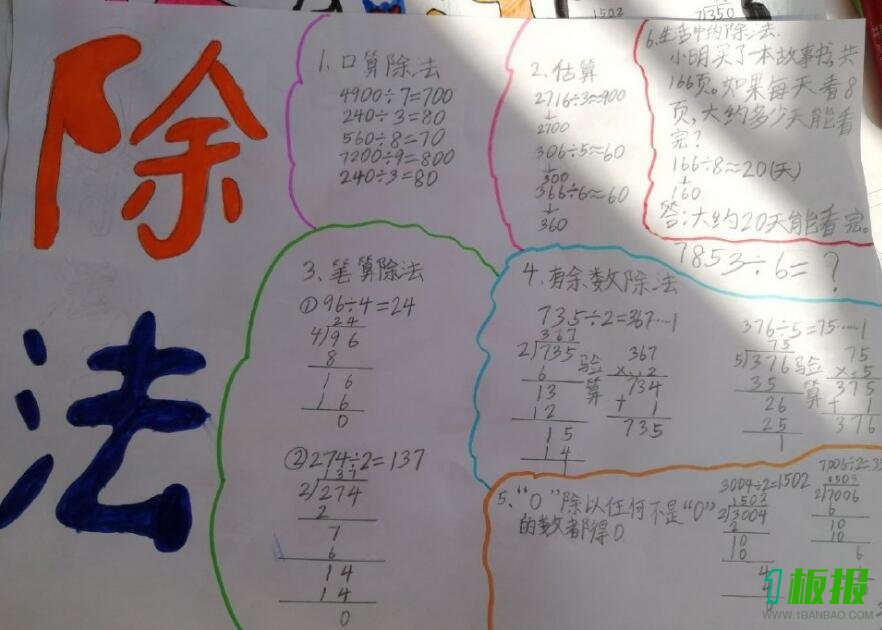 除
法
1502
7√350
1、口算除法
4900÷7=700
240÷3=80
560÷8=70
7200÷9=800
240÷3=80
2、估算
2716÷3≈900
2700
306÷5≈60
300
366÷6≈60
360
6.生活中的除法.
小明买了一本故事书,共
166页。如果每天看8
页,大约多少天能看
完?
166÷8≈20(天)
160
答:大约20天能看完。
7853÷6=?
3、笔算除法
①96÷4=24
24
4√96
8
16
16
0
②274÷2=137
137
2√274
2
7
6
14
14
0
4、有余数除法
735÷2=367……1
367
2√735
6
13
12
15
14
1
验算
367
×2
734
+ 1
735
376÷5=75……1
75
5√376
35
26
25
1
验算
75
×5
375
+ 1
376
5、“0”除以任何不是“0”
的数都得0
3004÷2=1502
1502
2√3004
2
10
10
4
4
0
7006÷2=35
3503
2√7006
6
10
10
6
1板报
WWW.1BANBAO.COM